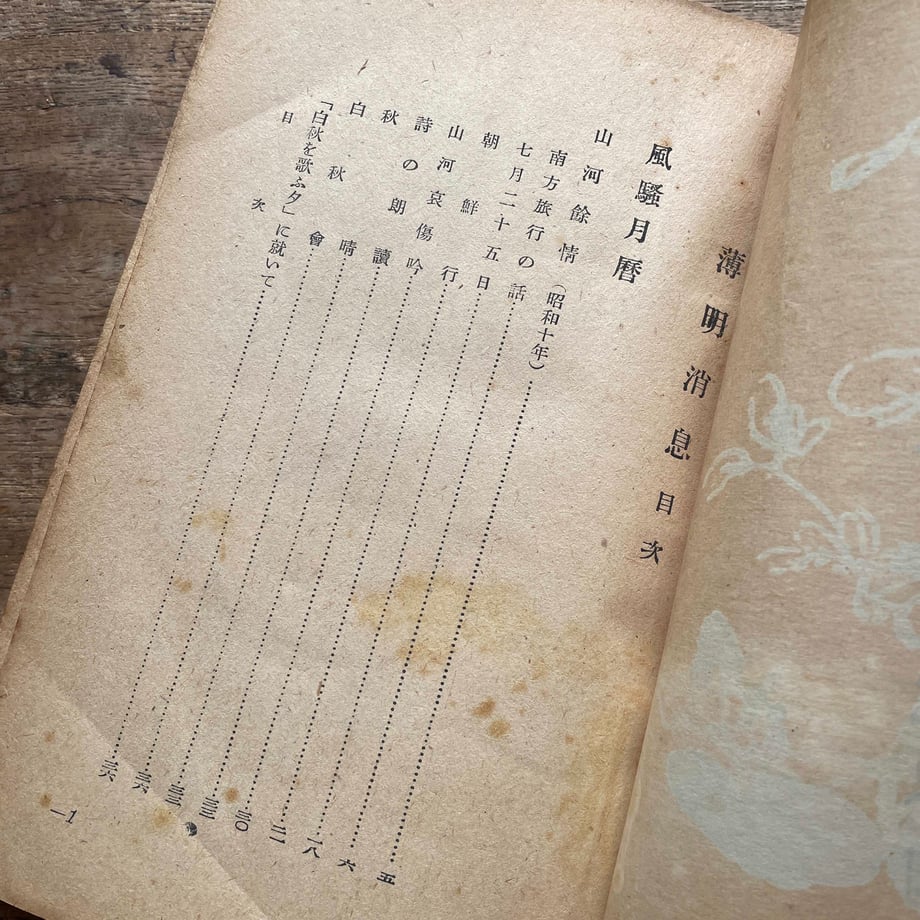 薄明消息 目次
風騷月暦
山河餘情（昭和十年）……五
南方旅行の話……六
七月二十五日……一八
朝鮮行……二一
山河哀傷吟……三〇
詩の朗讀……
秋晴……三三
白秋會……三六
「白秋を歌ふ夕」に就いて……
目次
—1